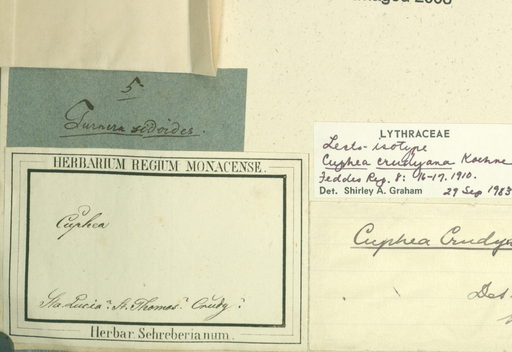 5
Turnera sedoides.
HERBARIUM REGIUM MONACENSE.
Cuphea
Sta. Lucia? St. Thomas? Crudy?
Herbar. Schreberianum.
LYTHRACEAE
Lecto-isotype
Cuphea crudyana Koehne
Feddes Rep. 8: 16-17. 1910.
Det. Shirley A. Graham 29 Sep 1983
Cuphea Crudy
Det.